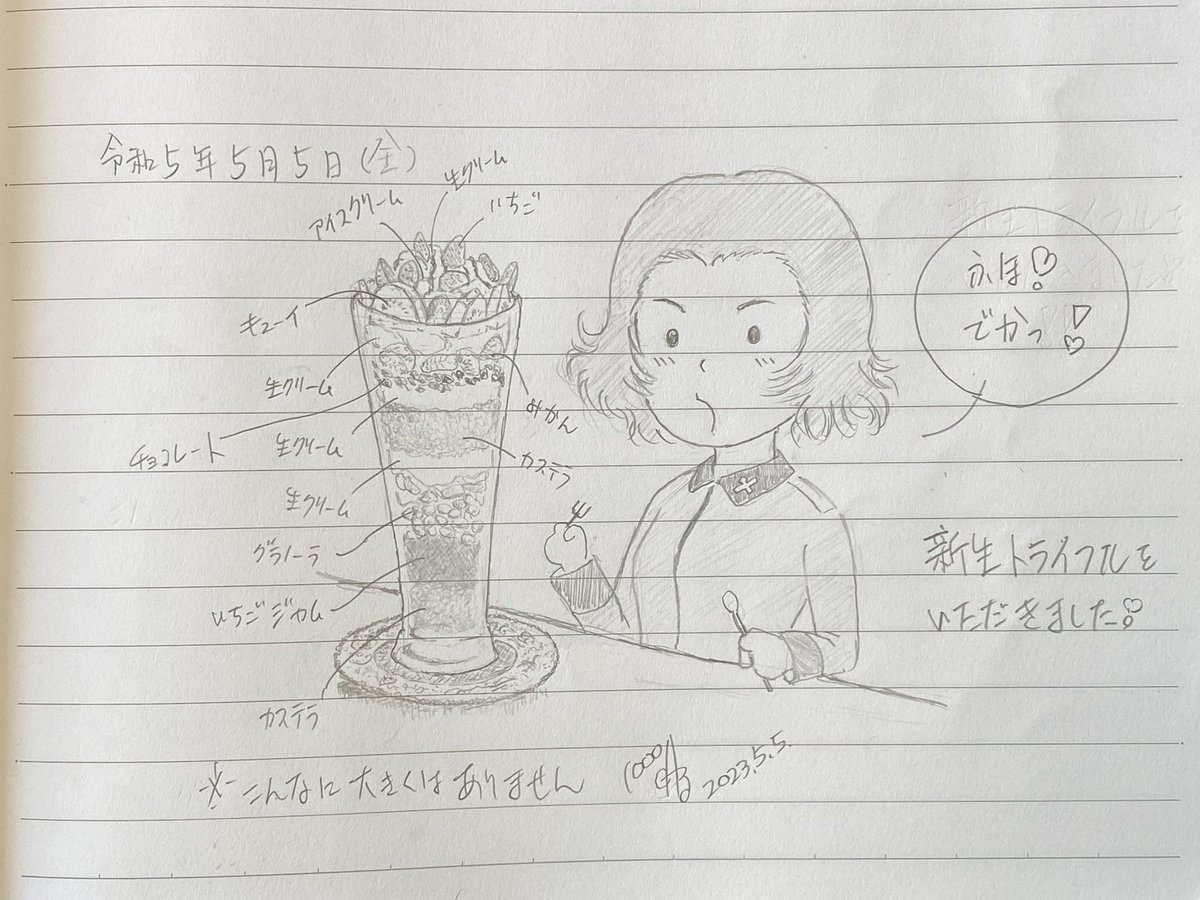 令和5年5月5日(金)
生クリーム
アイスクリーム
いちご
キューイ
生クリーム
みかん
チョコレート
生クリーム
カステラ
生クリーム
グラノーラ
いちごジャム
カステラ
ふほ!
でかっ!
新生トライフルを
いただきました!
※こんなに大きくはありません
2023.5.5.